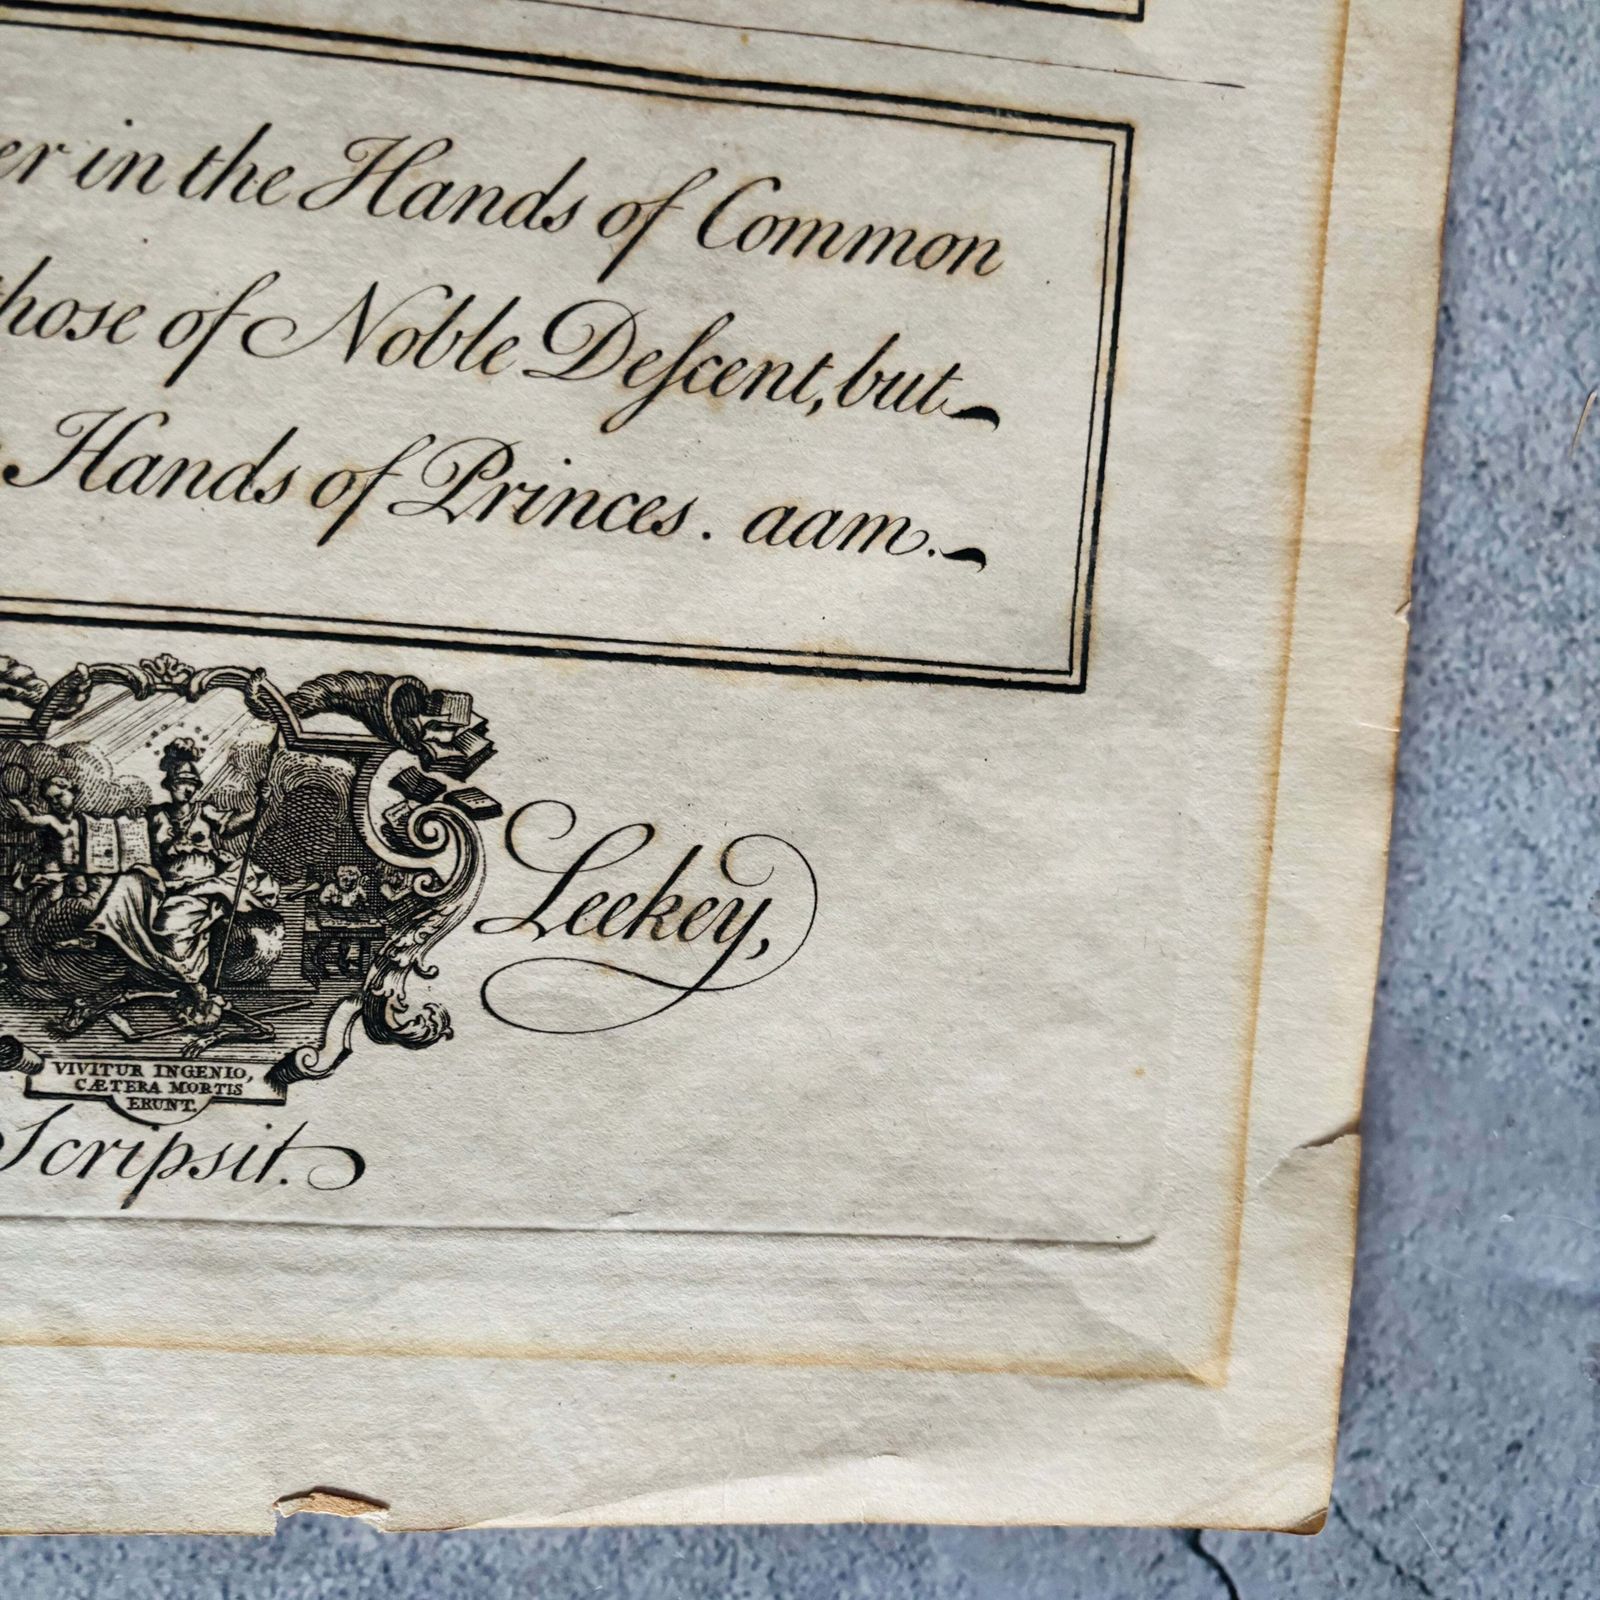 er in the Hands of Common
those of Noble Deſcent, but
Hands of Princes. aam.
Leekey,
VIVITUR INGENIO,
CÆTERA MORTIS
ERUNT.
Scripsit.